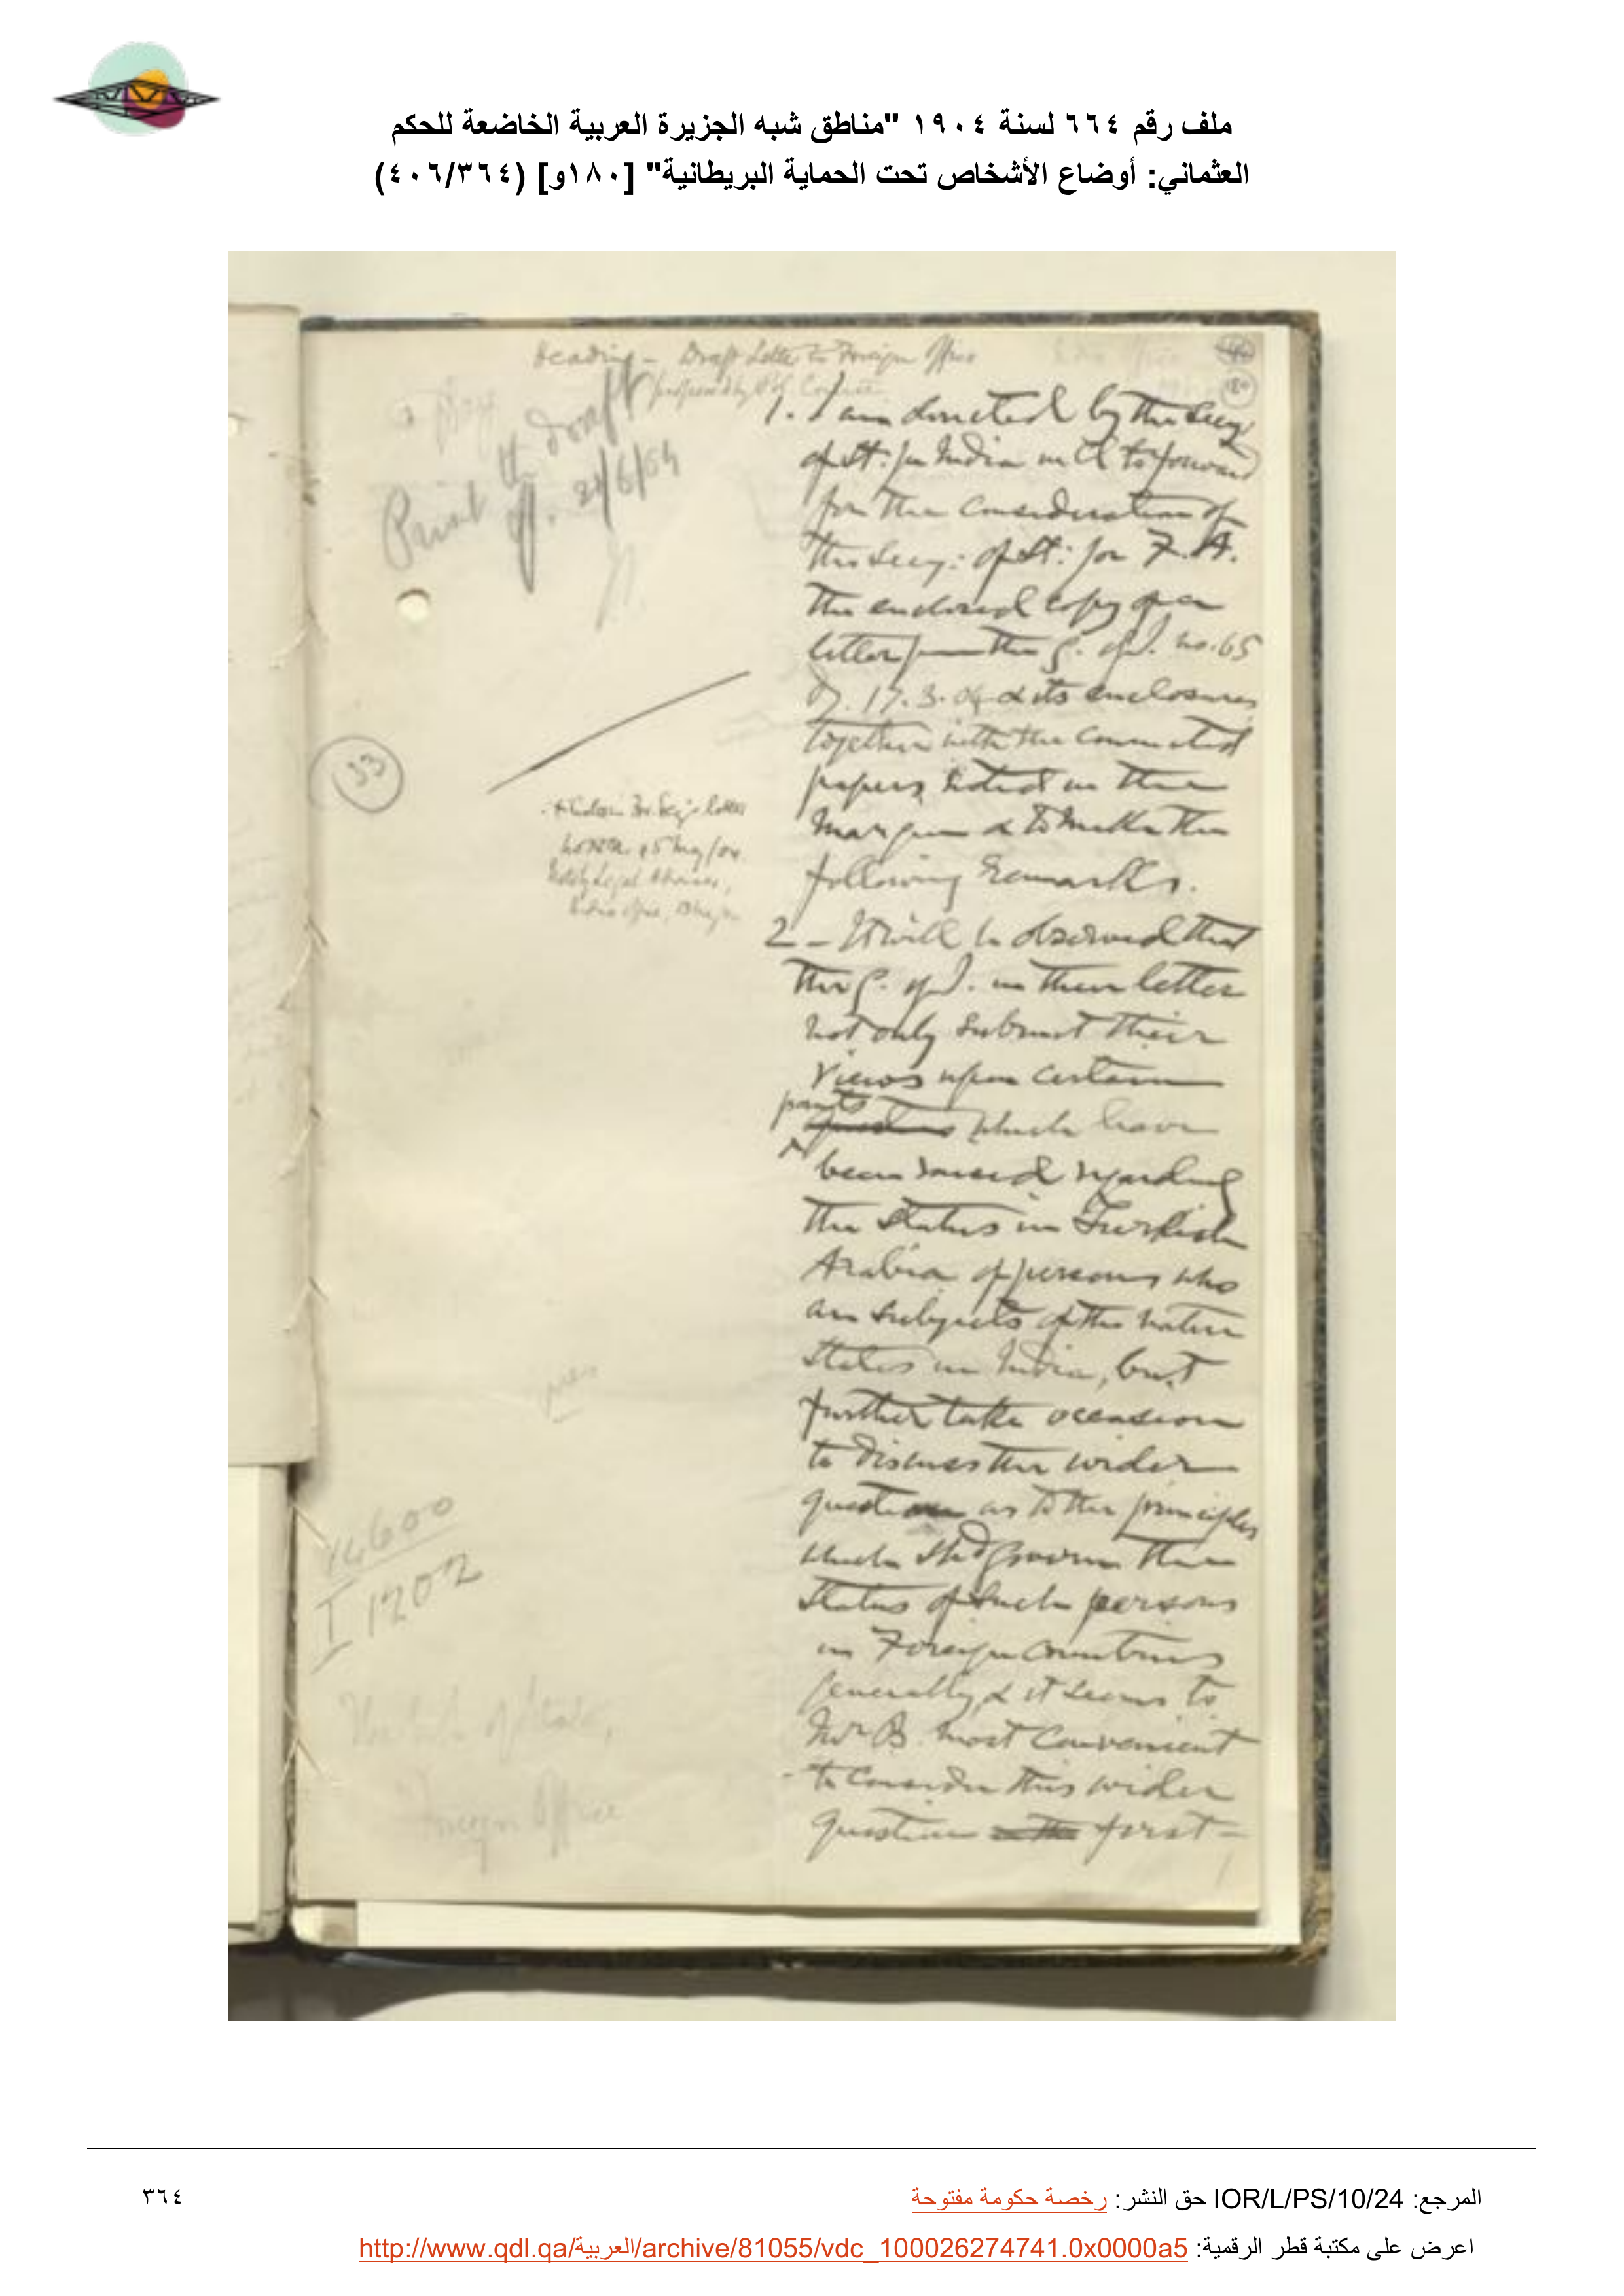 ملف رقم ٦٦٤ لسنة ١٩٠٤ "مناطق شبه الجزيرة العربية الخاضعة للحكم
العثماني: أوضاع الأشخاص تحت الحماية البريطانية" [١٨٠و] (٤٠٦/٣٦٤)
Heading - Draft Letter to Foreign Office
180
Print the draft
21/6/04
1. I am directed by the Secy:
of St: for India in C to forward
for the consideration of
the Secy: of St: for F.A.
the enclosed copy of a
letter from the G. of I. no. 65
of 17.3.04 & its enclosures
together with the connected
papers noted in the
margin & to make the
following remarks.
33
2 - It will be observed that
the G. of I. in their letter
not only submit their
views upon certain
points
which have
been raised regarding
the status in Turkish
Arabia of persons who
are subjects of the native
states in India, but
further take occasion
to discuss the wider
question as to the principles
which shd govern the
status of such persons
in Foreign Countries
generally, & it seems to
Mr B. most convenient
to consider this wider
question first -
1202
Foreign Office
المرجع: IOR/L/PS/10/24 حق النشر: رخصة حكومة مفتوحة
٣٦٤
اعرض على مكتبة قطر الرقمية: http://www.qdl.qa/العربية/archive/81055/vdc_100026274741.0x0000a5